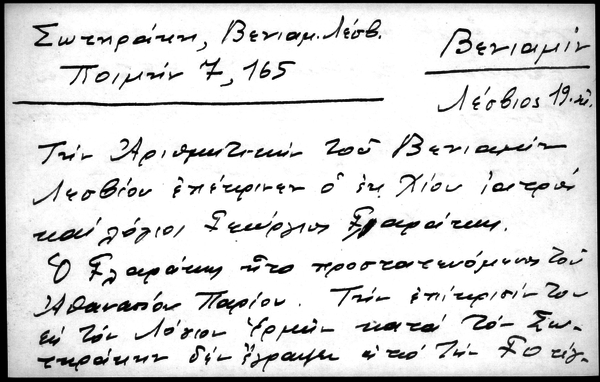 Σωτηράκη, Βενιαμ. Λέσβ.
Ποιμήν 7, 165
Βενιαμίν
Λέσβιος 19. αἰ.
Τὴν Ἀριθμητικὴν τοῦ Βενιαμὶν
Λεσβίου ἐπέκρινεν ὁ ἐκ Χίου ἰατρὸς
καὶ λόγιος Γεώργιος Γλαράκης.
Ὁ Γλαράκης ἦτο προστατευόμενος τοῦ
Ἀθανασίου Παρίου. Τὴν ἐπίκρισίν του
εἰς τὸν Λόγιον Ἑρμῆν κατὰ τὸν Σω-
τηράκην δὲν ἔγραψε ἀπὸ τὴν